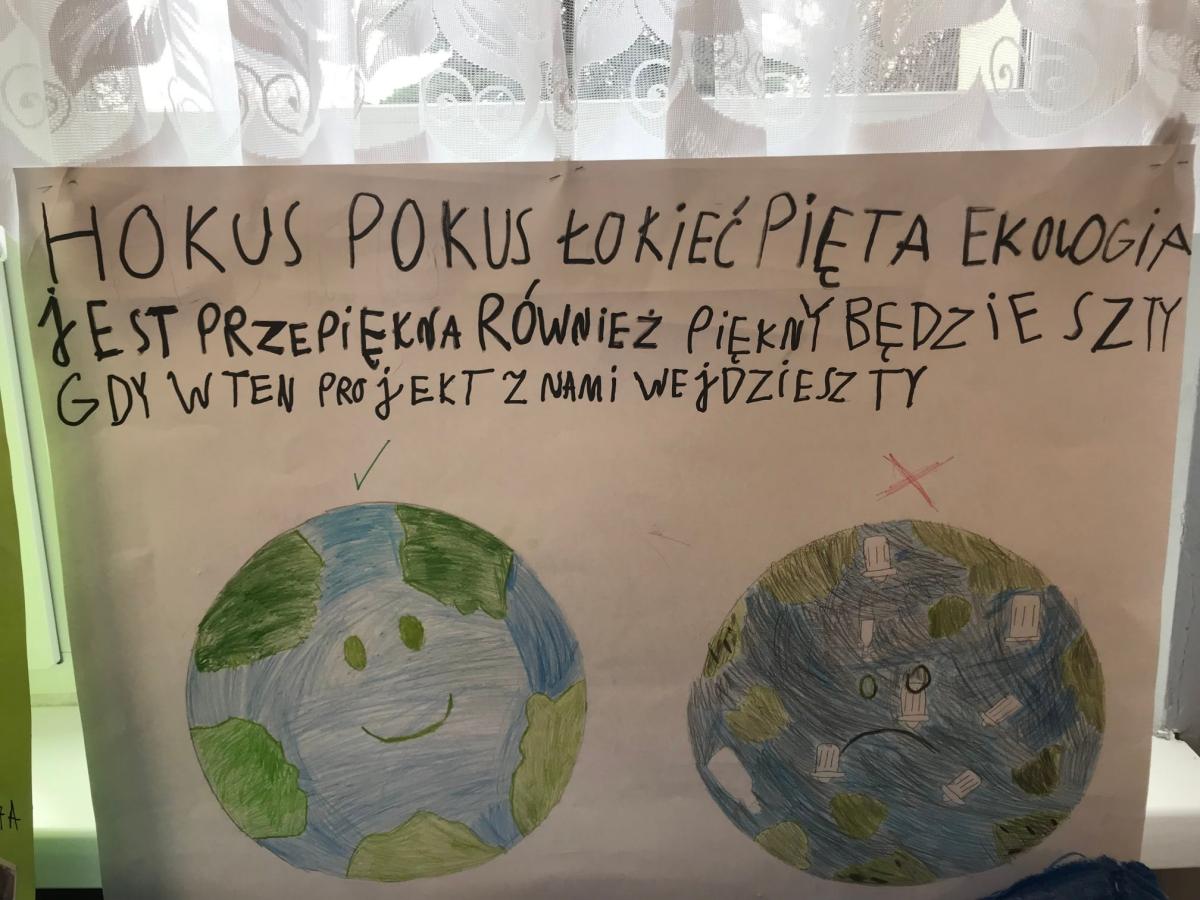 HOKUS POKUS ŁOKIEĆ PIĘTA EKOLOGIA
JEST PRZEPIĘKNA RÓWNIEŻ PIĘKNY BĘDZIESZ TY
GDY W TEN PROJEKT Z NAMI WEJDZIESZ TY